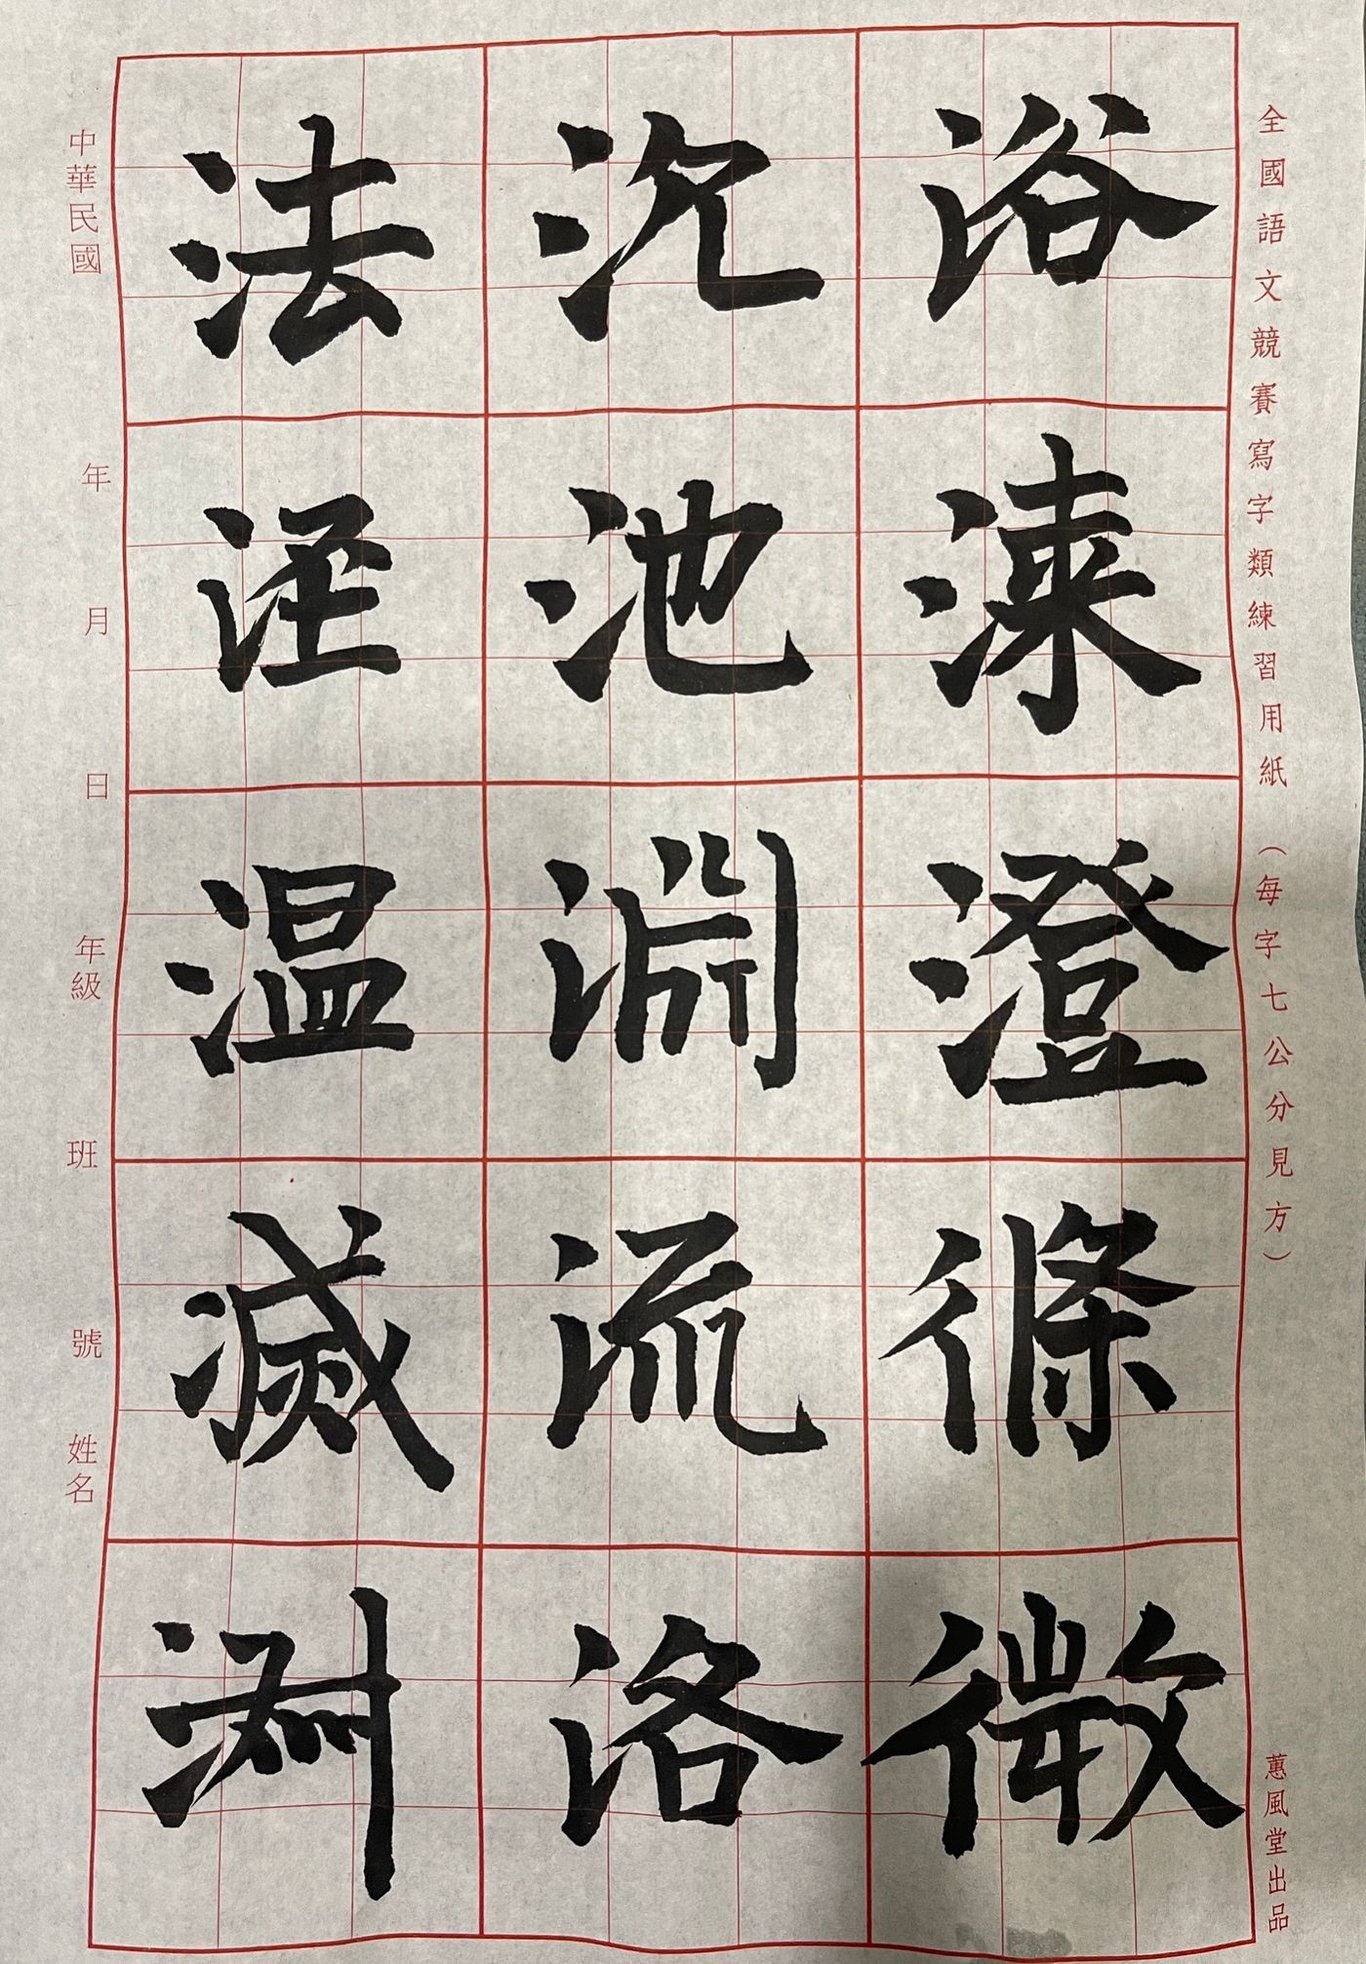 全國語文競賽寫字類練習用紙（每字七公分見方）
蕙風堂出品
浴澄條微
沉池淵流洛
法涇温滅
中華民國 年 月 日 年級 班 號 姓名